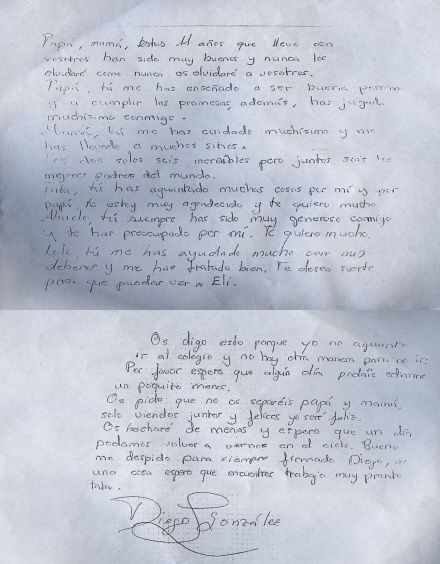 Papá, mamá, estos 11 años que llevo con
vosotros han sido muy buenos y nunca los
olvidaré como nunca os olvidaré a vosotros.
Papá, tú me has enseñado a ser buena persona
y a cumplir las promesas, además, has jugado
muchísimo conmigo.
Mamá, tú me has cuidado muchísimo y me
has llevado a muchos sitios.
Los dos solos seis increíbles pero juntos sois los
mejores padres del mundo.
Tata, tú has aguantado muchas cosas por mí y por
papá, te estoy muy agradecido y te quiero mucho.
Abuelo, tú siempre has sido muy generoso conmigo
y te has preocupado por mí. Te quiero mucho.
Lolo, tú me has ayudado mucho con mis
deberes y me has tratado bien. Te deseo suerte
para que puedas ver a Eli.
Os digo esto porque yo no aguanto
ir al colegio y no hay otra manera para no ir.
Por favor espero que algún día podáis odiarme
un poquito menos.
Os pido que no os separéis papá y mamá,
sólo viéndos juntos y felices yo seré feliz.
Os hecharé de menos y espero que un día
podamos volver a vernos en el cielo. Bueno
me despido para siempre firmado Diego,
una cosa espero que encuentres trabajo muy pronto
tata.
Diego González